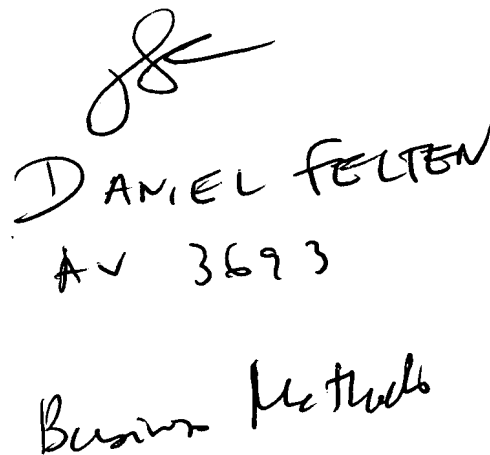 DANIEL FELTEN
AV 3693
Business Methods